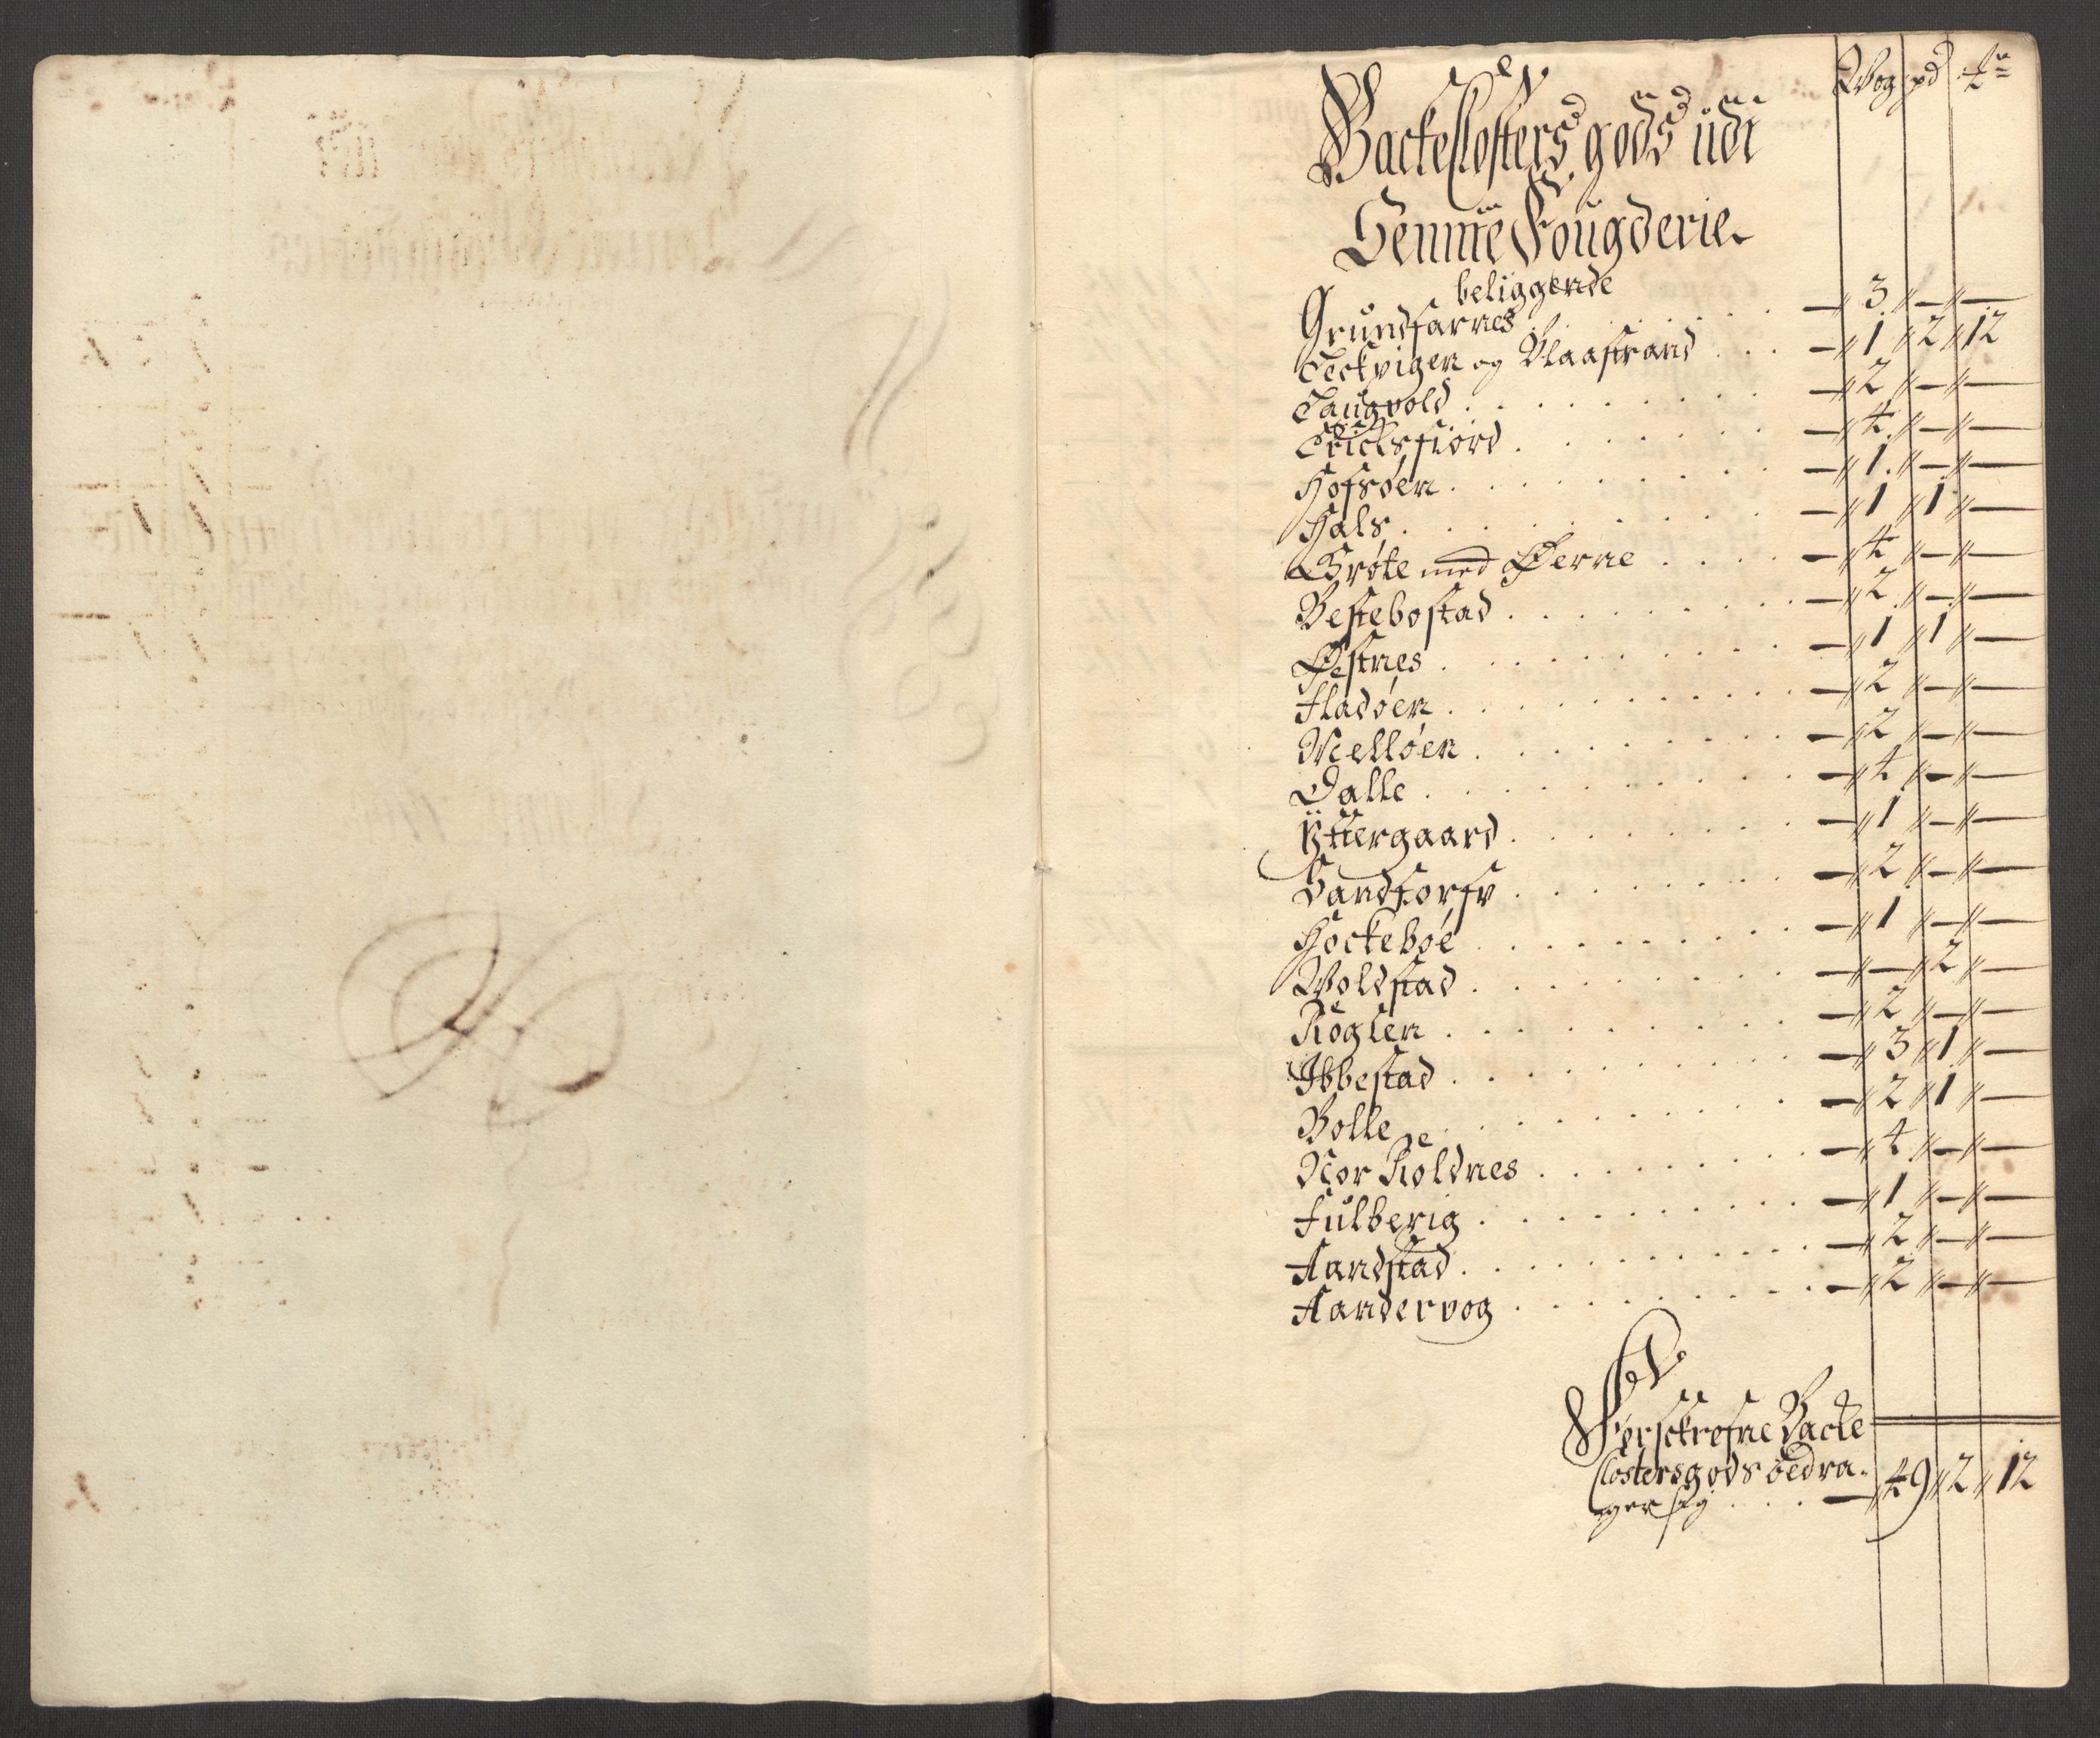 Wog pd
Backeclosters gods udi
Senniie Fougderie
beliggende
Grundfarnes . . . . . — 3 — —
Leckvigen og Blaastrand . . . — 1 2 12
Laugvold . . . . . — 2 — —
Ericksfiord . . . . . — 4 — —
Hofsøen . . . . . — 1 — —
Hals . . . . . — 1 1 —
Brøte med Øerne . . . . — 4 — —
Vestebostad . . . . . — 2 — —
Østnes . . . . . — 1 1 —
Fladøen . . . . . — 2 — —
Melløen . . . . . — 2 — —
Dalle . . . . . — 4 — —
Yttergaard . . . . . — 1 — —
Sandtorfv . . . . . — 2 — —
Hockebøe . . . . . — 1 — —
Woldstad . . . . . — — 2 —
Røglen . . . . . — 2 — —
Ibbestad . . . . . — 3 1 —
Bolle . . . . . — 2 1 —
Nor Roldnes . . . . . — 4 — —
Fulberig . . . . . — 1 — —
Aandstad . . . . . — 2 — —
Aandervog . . . . . — 2 — —
Forschrefne Backe
Closters gods bedra-
ger sig . . . . — 49 2 12